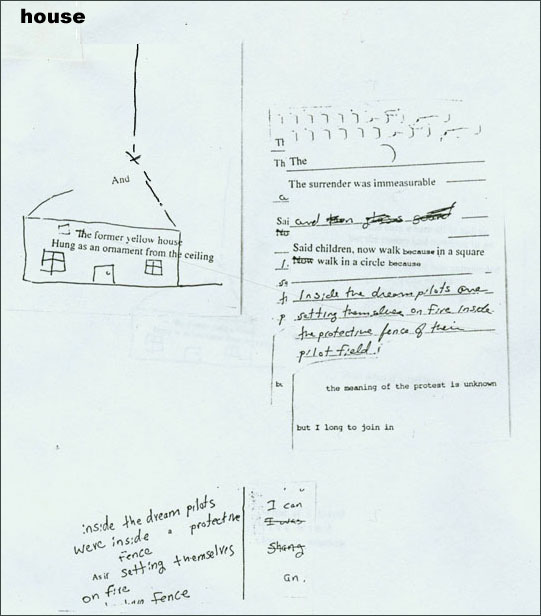 house
And
The former yellow house
Hung as an ornament from the ceiling
Th The
The surrender was immeasurable
Sai and
No
Said children, now walk because in a square
Now walk in a circle because
Inside the dream pilots are
setting themselves on fire inside
the protective fence of their
pilot field
the meaning of the protest is unknown
but I long to join in
inside the dream pilots
were inside a protective
fence
As if setting themselves
on fire
fence
I can
I was